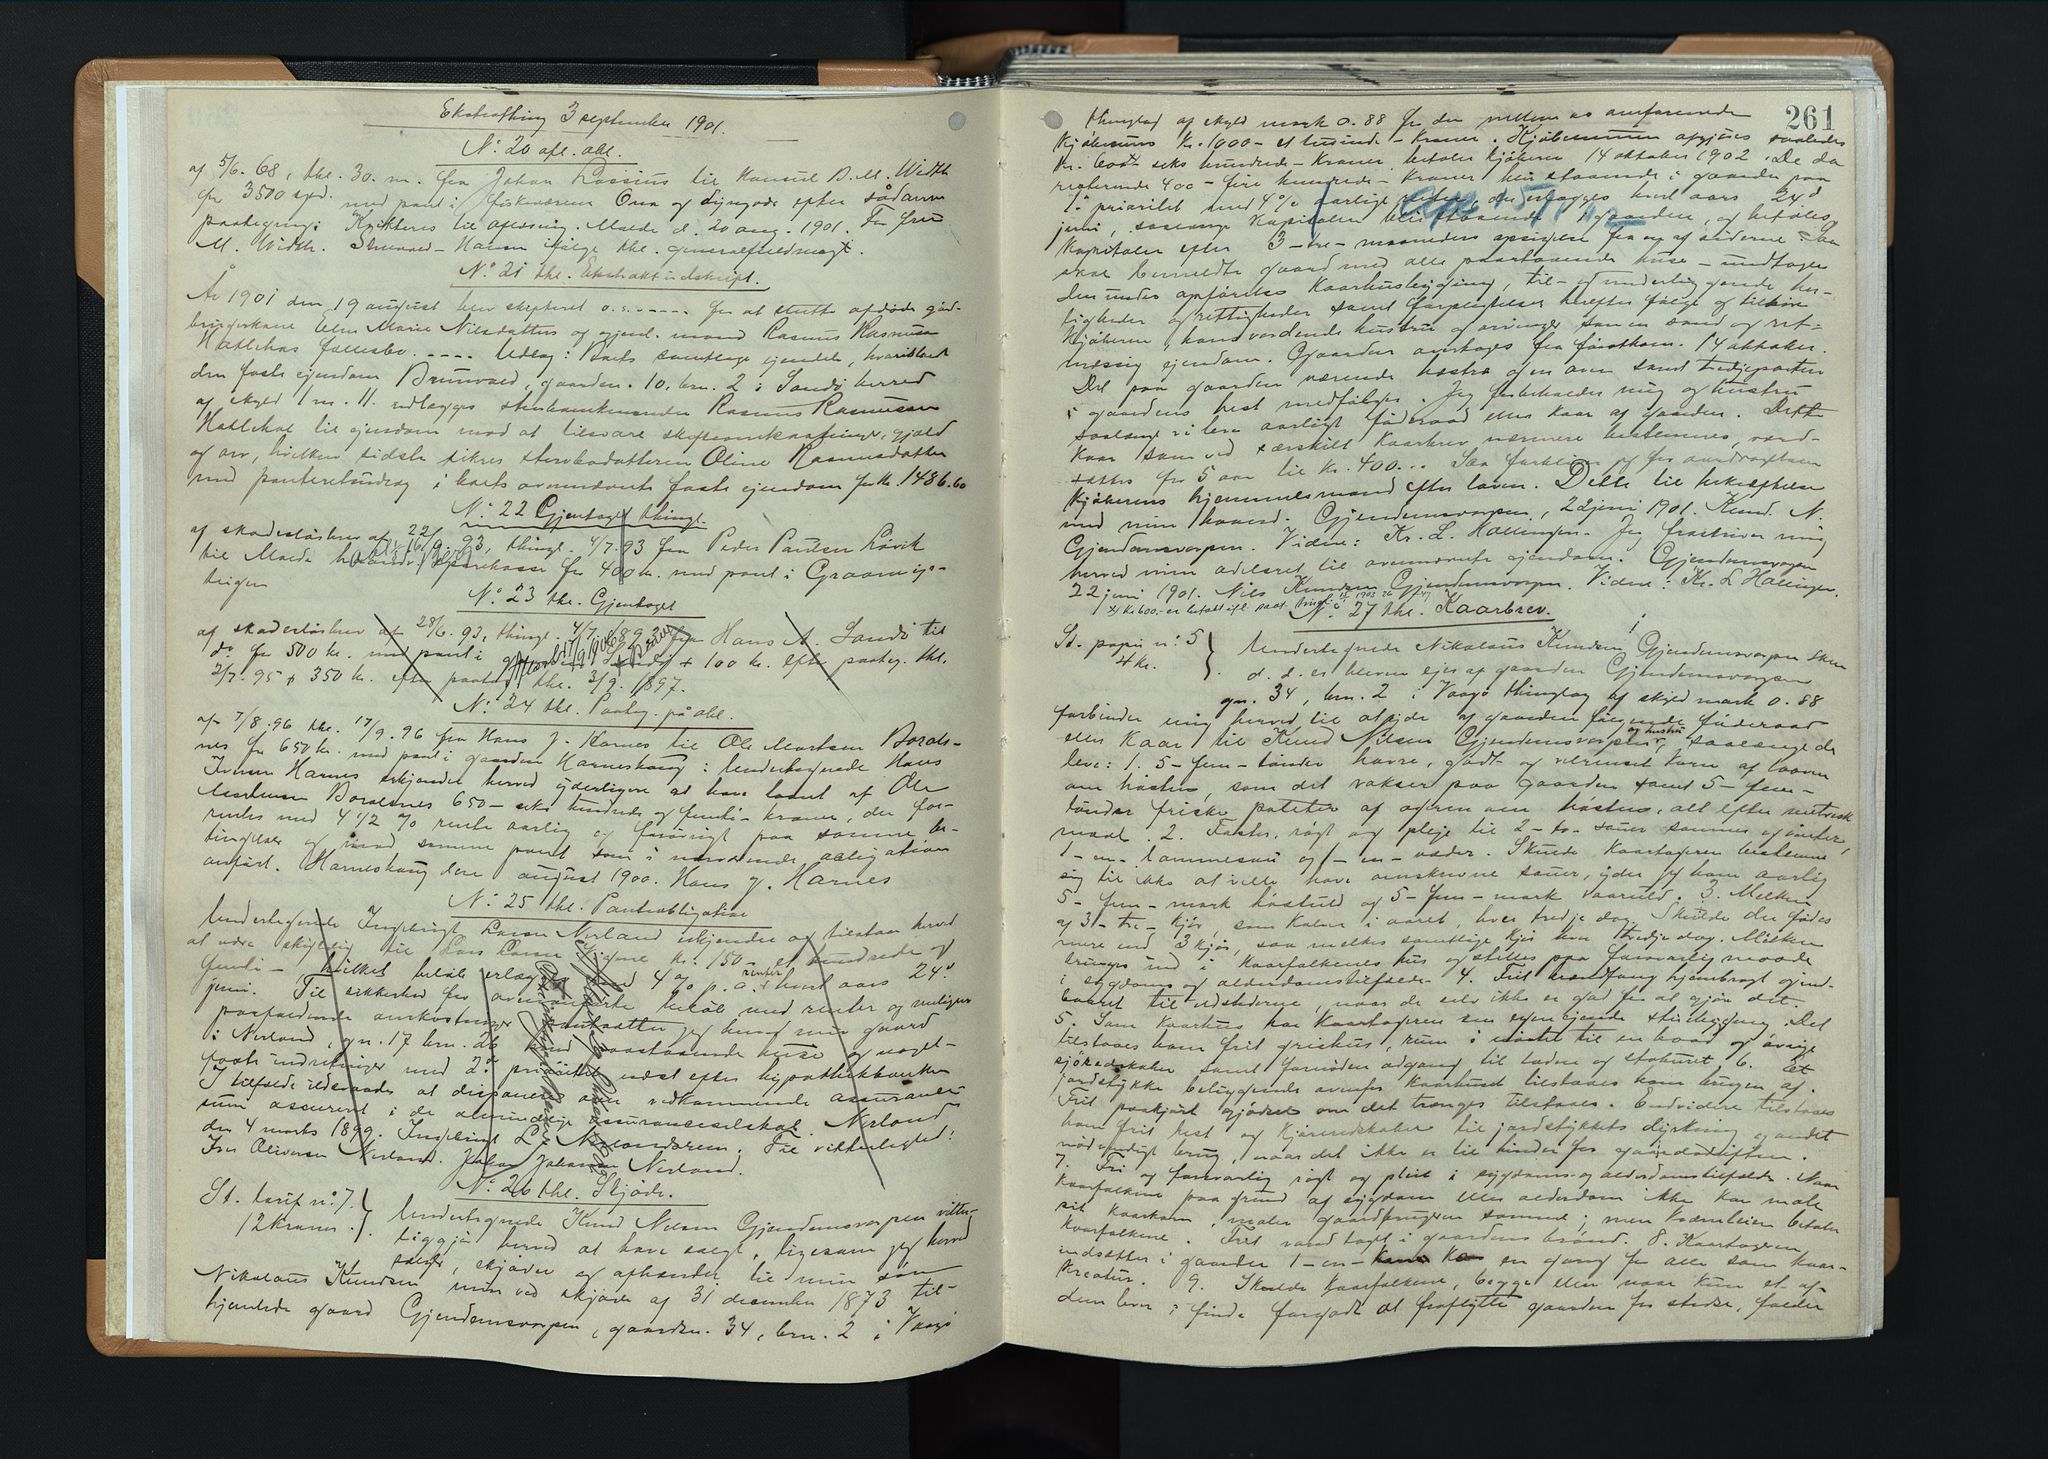 Ekstrathing 3 september 1901.
No: 20 afl. obl.
af 5/6. 68, thl. 30. m. fra Johan Lossius til Konsul D. M. Width
for 3500 spd. med pant i fiskeværene Ona og efter sådan
paategning: Kvitteres til aflæsning. Molde d. 20 aug. 1901. For fru
M. Width. Hansen ifølge thl. generalfuldmagt.
No: 21 thl. Ekstraktudskrift.
År 1901 den 19 august blev skifteret o.s. ..... for at slutte afdøde gård-
brugerkone Marie Nilsdatters og gjenl. mand Rasmus Rasmussen
fællesbo. .... Udlæg: Boets samtlige ejendele, heriblandt
den faste ejendom Brunvold, gaardsn. 10, brn. 2 i Sandø herred
af skyld 1 m. 11. udlægges Rasmus Rasmussen
til ejendom mod at tilsvare skifteomkostninger, gjæld
og arv, hvilken sidste sikres Oline Rasmusdatter
med panteret i boets ovennævnte faste ejendom for kr. 1486.60
No: 22 Gjentaget thingl.
af skadesløsbrev af 22/6. 93, thingl. 4/7. 93 fra Peder Paulsen
til Molde sparekasse for 400 kr. med pant i
No: 23 thl. Gjentaget
af skadesløsbrev af 28/6. 93, thingl. 4/7. 1893 fra Hans A. Sandø til
do for 500 kr. med pant i + 100 kr. efter paateg. thl.
2/7. 95 + 350 kr. efter paateg. thl. 3/9. 1897.
No: 24 thl. Paateg. på obl.
af 7/8. 96 thl. 17/9. 96 fra Hans J. Harnes til Ole Martin
for 650 kr. med pant i gaarden Harneshaug: Undertegnede Hans
Iversen Harnes erkjender herved yderligere at have laant af Ole
650 - seks hundrede og femti - kroner, der for-
rentes med 4 1/2 % rente aarlig og forøvrigt paa samme be-
tingelser og mod samme pant som i nærværende obligation
anført. Harneshaug den august 1900. Hans J. Harnes
No: 25 thl. Panteobligation
Undertegnede Ingebrigt Larsen Nerland erkjender og tilstaar herved
at være skyldig til Lars Larsen kr. 150 - et hundrede og
femti - hvilket beløb erlægges med 4 % p. a. renter hvert aars 24de
juni. Til sikkerhed for ovenanførte beløb med renter og muligens
paafaldende omkostninger pantsætter jeg herved min gaard
i Nerland, gn. 17 brn. 26 med paastaaende huse og
indretninger med 2den prioritet næst efter hypothekbanken
I tilfælde ildsvaade at disponere over vedkommende assurance
sum assureret i de almindelige assuranceselskab. Nerland
den 4 marts 1899. Ingebrigt L. Nerland. Til vitterlighed:
Iver Oliversen Nerland. Johan Johansen Nerland.
No: 26 thl. Skjøde.
St. tarif no: 7.
12 kroner.
Undertegnede Knud Nilsen Gjendemsvorpen vitter-
liggjør herved at have solgt, ligesom jeg herved
sælger, skjøder og afhænder til min søn
Nikolaus Knudsen min ved skjøde af 31 december 1873 til-
hjemlede gaard Gjendemsvorpen, gaardsn. 34, brn. 2 i Vaagø
261
thinglag af skyld mark 0.88 for den mellem os omforenede
kjøbesum kr. 1000 - et tusinde - kroner. Kjøbesummen afgjøres saaledes
kr. 600 - seks hundrede - kroner betaler kjøberen 14 oktober 1902. De da
resterende 400 - fire hundrede - kroner blir staaende i gaarden paa
1ste prioritet med 4 % aarlige renter, der erlægges hvert aars 24de
juni, saalænge kapitalen blir staaende i gaarden, og betales
kapitalen efter 3 - tre - maaneders opsigelse fra en af siderne. Saa
skal bemeldte gaard med alle paastaaende huse - undtagen
den under opførelse Kaarhusbygning, til- og underliggende her-
ligheder og rettigheder samt forpligtelser herefter følge og tilhøre
Kjøberen, hans vordende hustru og arvinger som en sand og ret-
mæssig ejendom. Gaarden overtages fra førstkom. 14 oktober.
Det paa gaarden værende høstrø ogen oven samt tredjeparten
i gaardens hest medfølger. Jeg forbeholder mig og hustru
saalænge vi lever aarligt føderaad eller kaar af gaarden. Dette
kaar som ved særskilt kaarbrev nærmere bestemmes, værd-
sættes for 5 aar til kr. 400.... Saa forbliver jeg for overdragelsen
kjøberens hjemmelsmand efter loven. Dette til bekræftelse
med min haand. Gjendemsvorpen, 22 juni 1901. Knud N.
Gjendemsvorpen. Vidne: Kr. L. Hallingen. Jeg fraskriver mig
herved min odelsret til ovennævnte ejendom. Gjendemsvorpen
22 juni 1901. Nils Knudsen Gjendemsvorpen. Vidne: Kr. L Hallingen.
No: 27 thl. Kaarbrev.
St. papir no: 5
4 kr.
Undertegnede Nikolaus Knudsen Gjendemsvorpen som
d. d. er bleven ejer af gaarden Gjendemsvorpen
gn. 34, brn. 2 i Vaagø thinglag af skyld mark 0.88
forbinder mig herved til at yde af gaarden følgende føderaad
eller kaar til Knud Nilsen Gjendemsvorpen og hustru, saalænge de
lever: 1. 5 - fem - tønder havre, godt og velrenset korn af loven
om høsten, som det vokser paa gaarden samt 5 - fem -
tønder friske poteter af ageren om høsten, alt efter metrisk
maal. 2. Foster, røgt og pleje til 2 - to - sauer sommer og vinter,
1 - en - lammesau og 1 - en - væder. Skulde kaartageren bestemme
sig til ikke at ville have omskrevne sauer, yder jeg ham aarlig
5 - fem - mark høstuld og 5 - fem - mark vaaruld. 3. Melken
af 3 - tre - kjør, som kalver i aaret, hver tredje dag. Skulde der fødes
mere end 3 kjør, saa melkes samtlige kjør hver tredje dag. Melken
bringes ind i kaarfolkenes hus og stilles paa forsvarlig maade
i sygdoms og alderdomstilfælde. 4. Frit brændfang hjembragt og ind-
baaret til ildstederne, naar de selv ikke er god for at gjøre det.
5. Som kaarhus har kaartageren sin egen ejende stuebygning. Det
tilstaaes ham frit grishus, rum i naustet til en baad og øvrige
sjøredskaber samt fornøden adgang til laden og stabburet. 6. Et
jordstykke beliggende ovenfor kaarhuset tilstaaes ham brugen af.
Frit paakjørt gjødsel om det trænges tilstaaes. Endvidere tilstaaes
ham frit hest og kjøreredskaber til jordstykkets dyrkning og andet
nødvendigt brug, naar det ikke er til hinder for gaardsdriften.
7. Fri og forsvarlig røgt og pleie i sygdoms- og alderdomstilfælde. Naar
kaarfolkene paa grund af sygdom eller alderdom ikke kan male
sit kaarkorn, maler gaardbrugeren samme; men kværnleien betaler
kaarfolkene. Frit vand tagt i gaardens brønd. 8. Kaartageren
indsætter i gaarden 1 - en - ko en gang for alle som kaar-
kreatur. 9. Skulde kaarfolkene, begge eller naar kun et af
dem lever, finde forgodt at fraflytte gaarden for stedse, falder